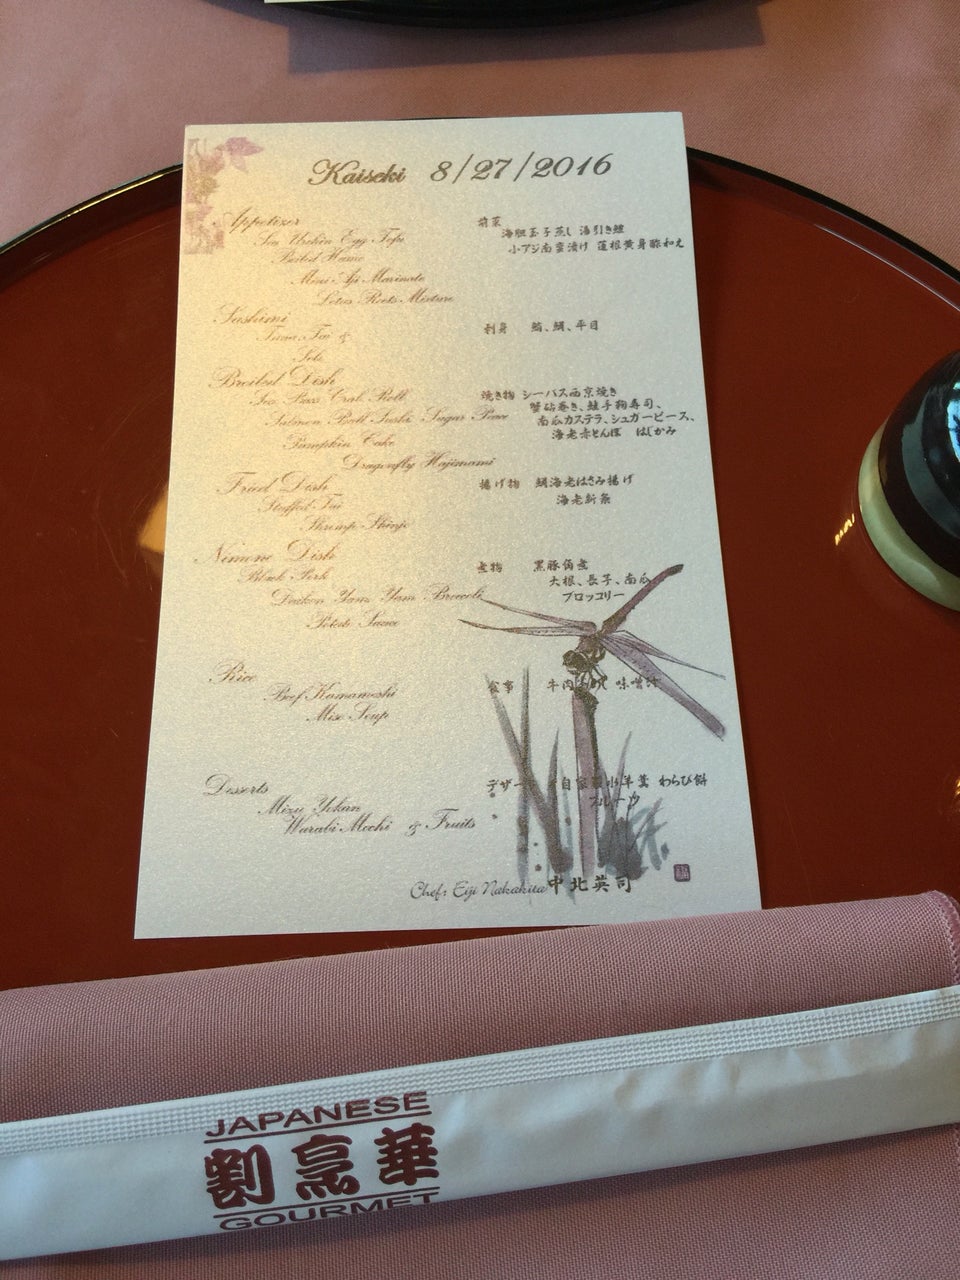 Kaiseki 8/27/2016
Appetizer
Sea Urchin Egg Tofu
Boiled Hamo
Mini Aji Marinate
Lotus Roots Mixture
Sashimi
Tuna, Tai &
Broiled Dish
Sea Bass Crab Roll
Salmon Ball Sushi Sugar Peace
Pumpkin Cake
Dragonfly Hajimami
Fried Dish
Stuffed Tai
Shrimp Shinjo
Nimono Dish
Black Pork
Daikon Yam Yam Broccoli
Potato Sauce
Rice
Beef Kamameshi
Miso Soup
Desserts
Mizu Yokan
Warabi Mochi & Fruits
前菜
海胆玉子蒸し 湯引き鱧
小アジ南蛮漬け 蓮根黄身酢和え
刺身 鮪、鯛、平目
焼き物 シーバス西京焼き
蟹砧巻き、鮭手鞠寿司、
南瓜カステラ、シュガーピース、
海老赤とんぼ はじかみ
揚げ物 鯛海老はさみ揚げ
海老新条
煮物 黒豚角煮
大根、長子、南瓜
ブロッコリー
食事 牛肉 味噌汁
デザート 自家製水羊羹 わらび餅
フルーツ
Chef: Eiji Nakakita 中北英司
JAPANESE
割烹華
GOURMET